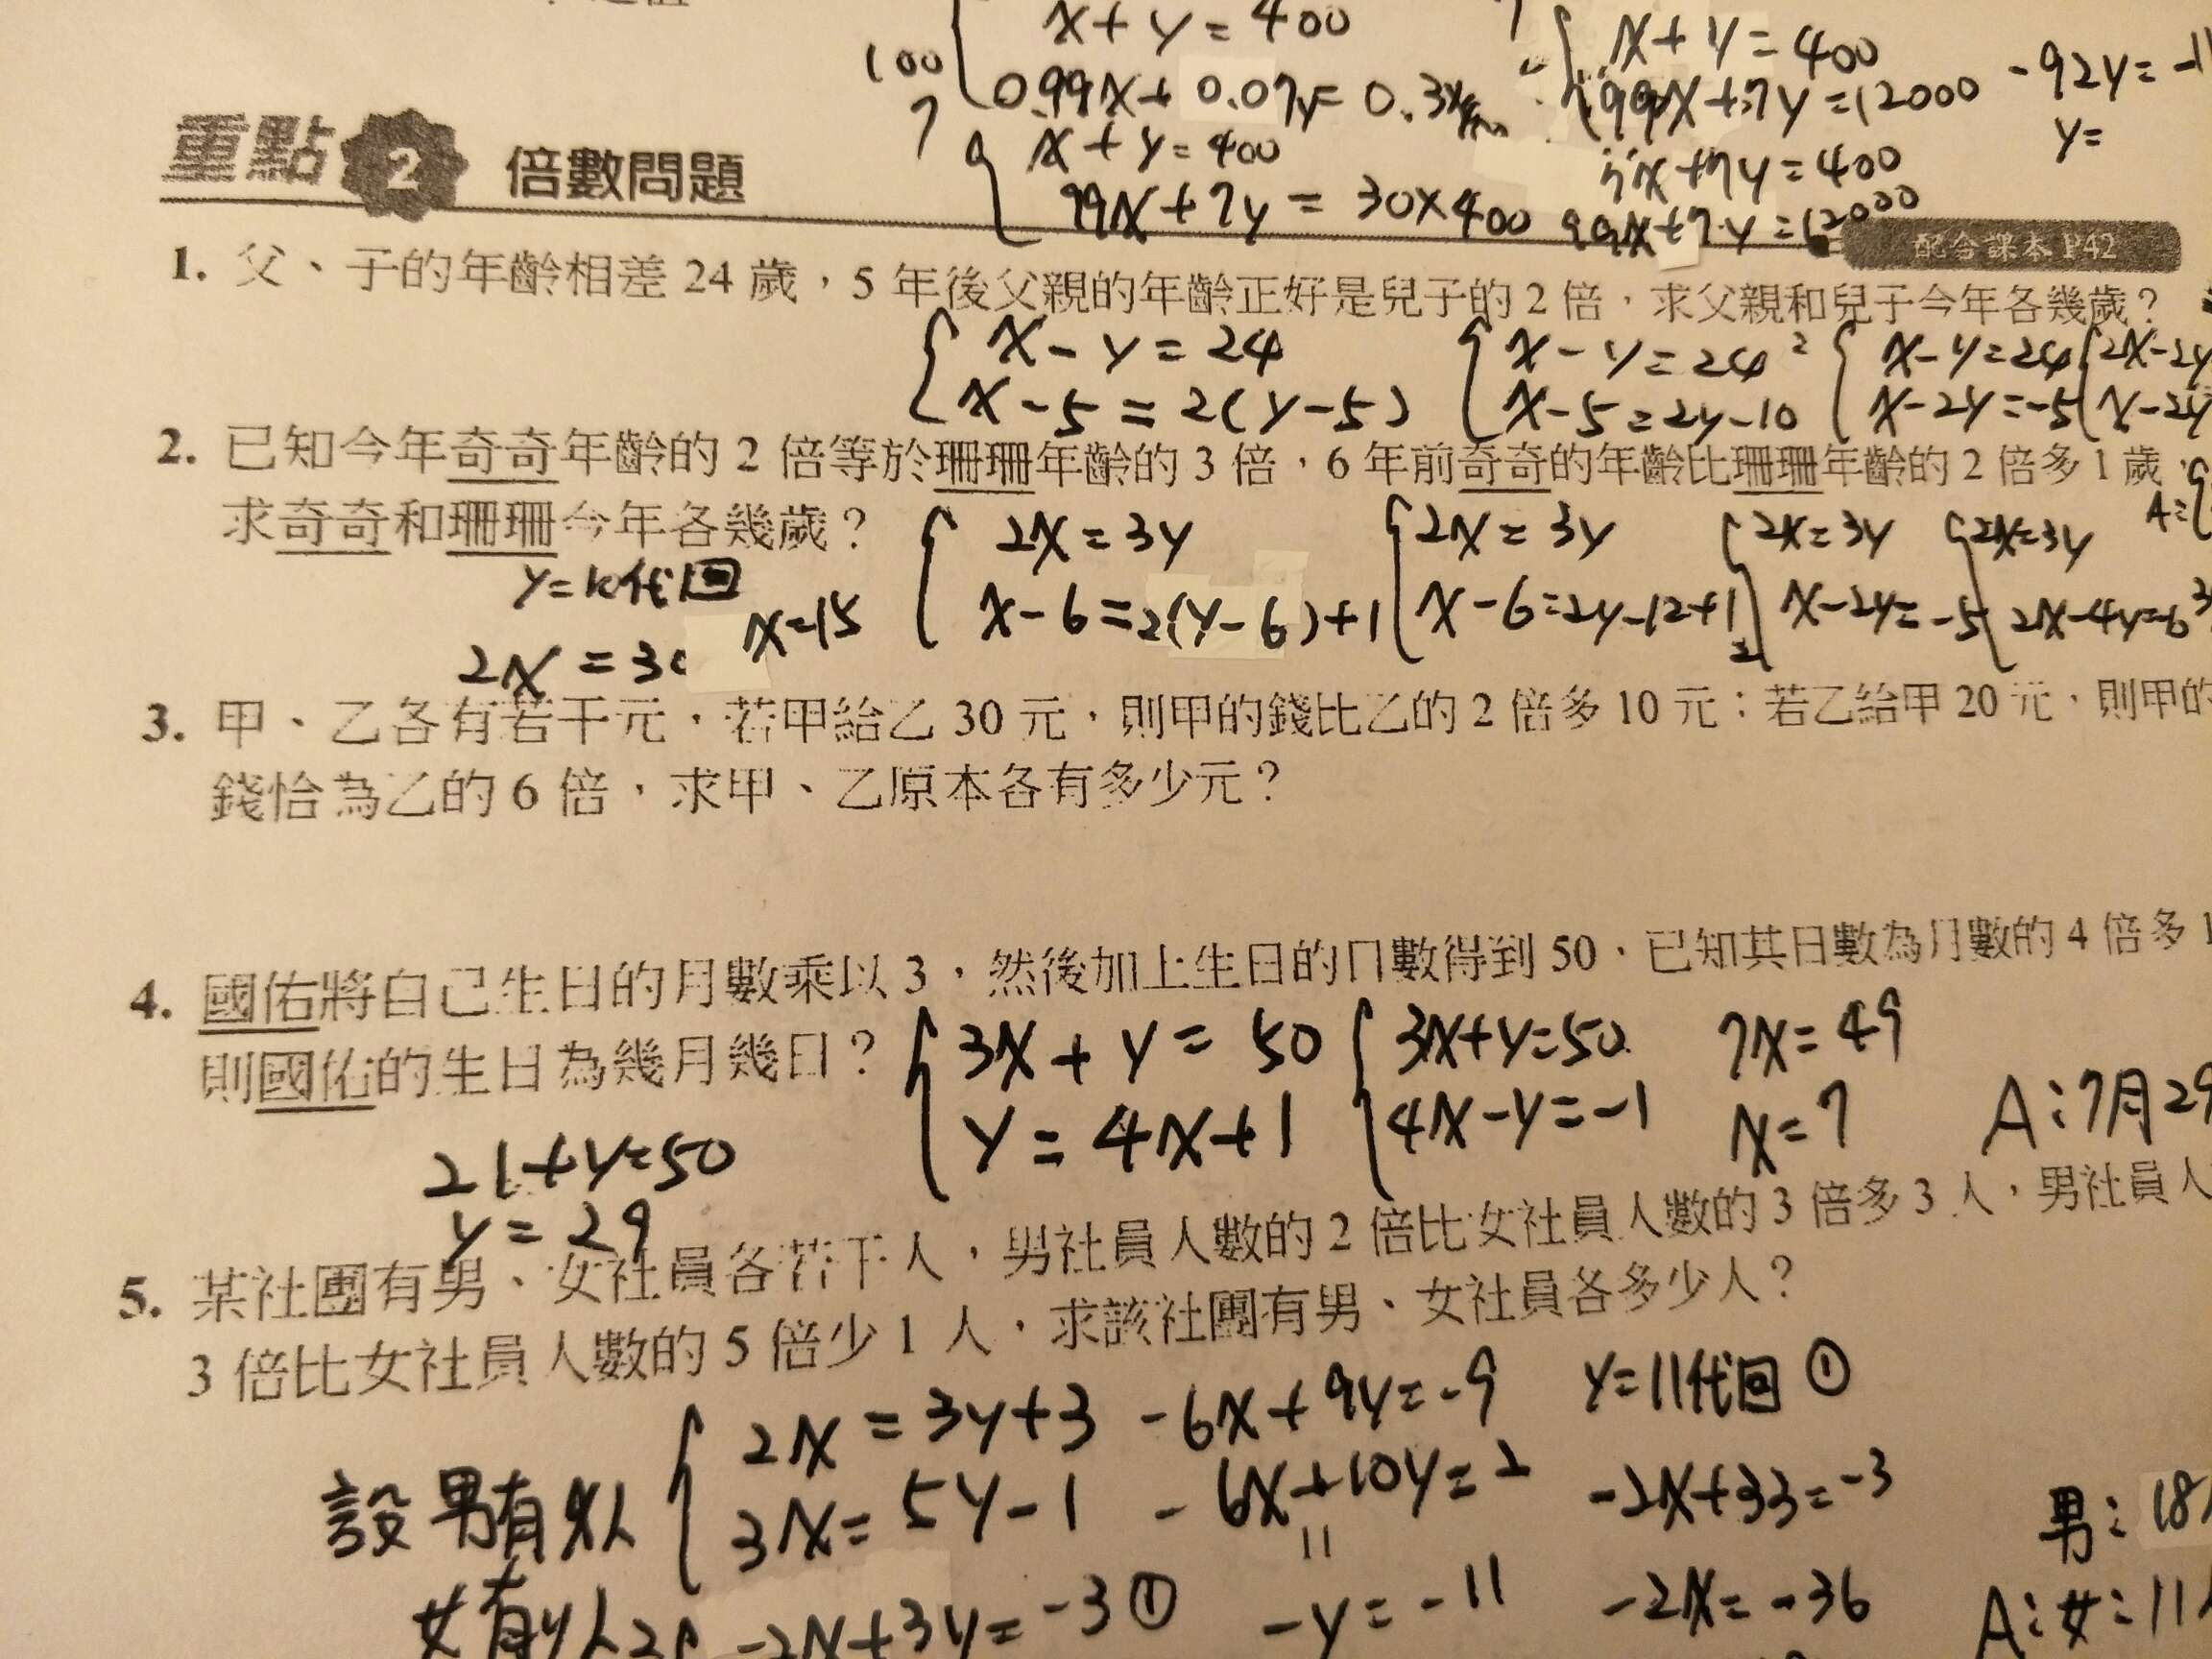 x+y=400
100
0.99x+0.07y=0.3
7
x+y=400
99x+7y=12000
-92y=-11
y=
x+y=400
99x+7y=30×400
7x+7y=400
99x+7y=12000
重點 2 倍數問題
配合課本 P42
1. 父、子的年齡相差 24 歲,5 年後父親的年齡正好是兒子的 2 倍,求父親和兒子今年各幾歲?
x-y=24
x-5=2(y-5)
x-y=24
x-5=2y-10
x-y=24
x-2y=-5
2x-2y
x-2y
2. 已知今年奇奇年齡的 2 倍等於珊珊年齡的 3 倍,6 年前奇奇的年齡比珊珊年齡的 2 倍多 1 歲,
求奇奇和珊珊今年各幾歲?
2x=3y
x-6=2(y-6)+1
2x=3y
x-6=2y-12+1
2x=3y
x-2y=-5
2x=3y
A:
y=10代回
2x=30
x=15
3. 甲、乙各有若干元,若甲給乙 30 元,則甲的錢比乙的 2 倍多 10 元;若乙給甲 20 元,則甲的
錢恰為乙的 6 倍,求甲、乙原本各有多少元?
4. 國佑將自己生日的月數乘以 3,然後加上生日的日數得到 50,已知其日數為月數的 4 倍多 1
則國佑的生日為幾月幾日?
3x+y=50
y=4x+1
3x+y=50
4x-y=-1
7x=49
x=7
A:7月29
21+y=50
y=29
5. 某社團有男、女社員各若干人,男社員人數的 2 倍比女社員人數的 3 倍多 3 人,男社員人
3 倍比女社員人數的 5 倍少 1 人,求該社團有男、女社員各多少人?
設男有x人
女有y人
2x=3y+3
3x=5y-1
-2x+3y=-3①
-6x+9y=-9
-6x+10y=2
11
-y=-11
y=11代回①
-2x+33=-3
-2x=-36
男:18
A:女:11